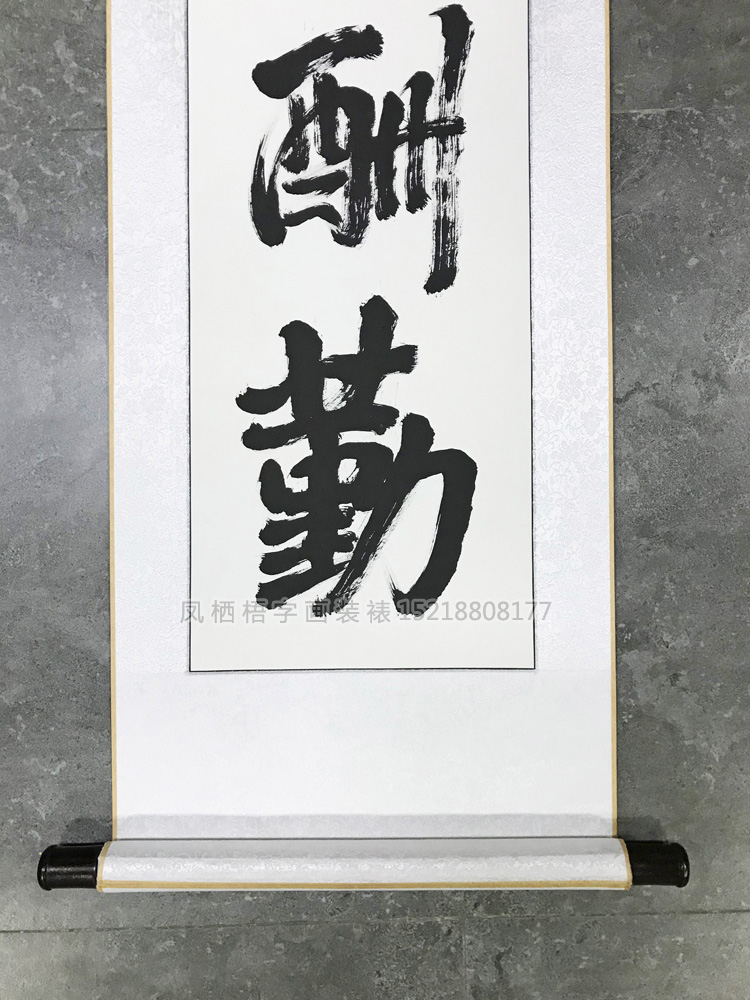 酬
勤
凤栖梧字画装裱15218808177